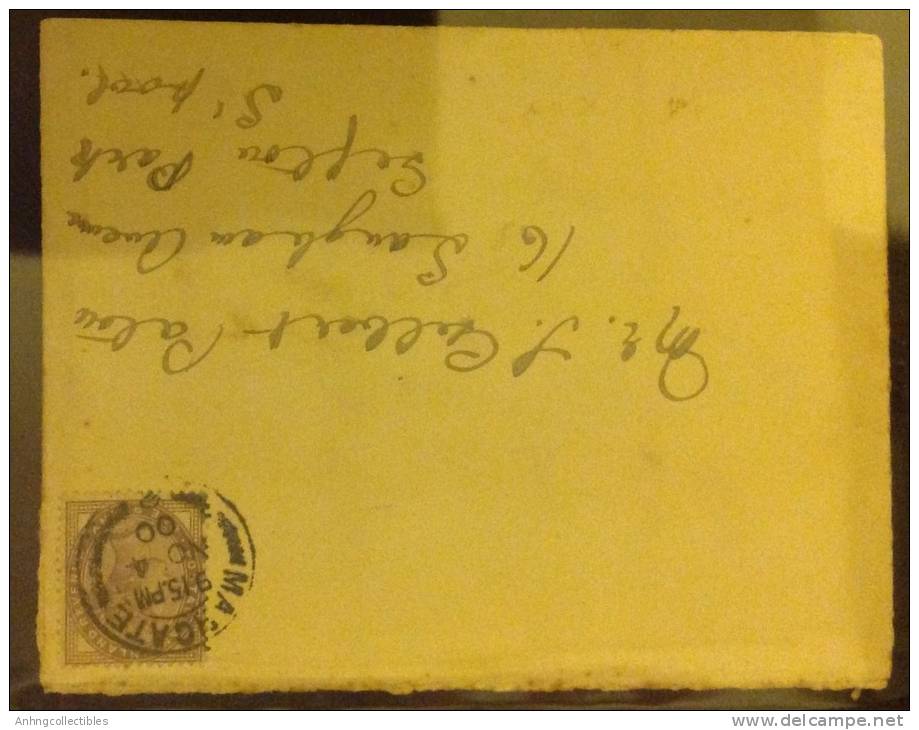 Mr. J. Gilbert-
16 Langham Avenue
Sefton Park
L'pool.
MARGATE
9.15.PM
00
Anhngcollectibles
www.delcampe.net